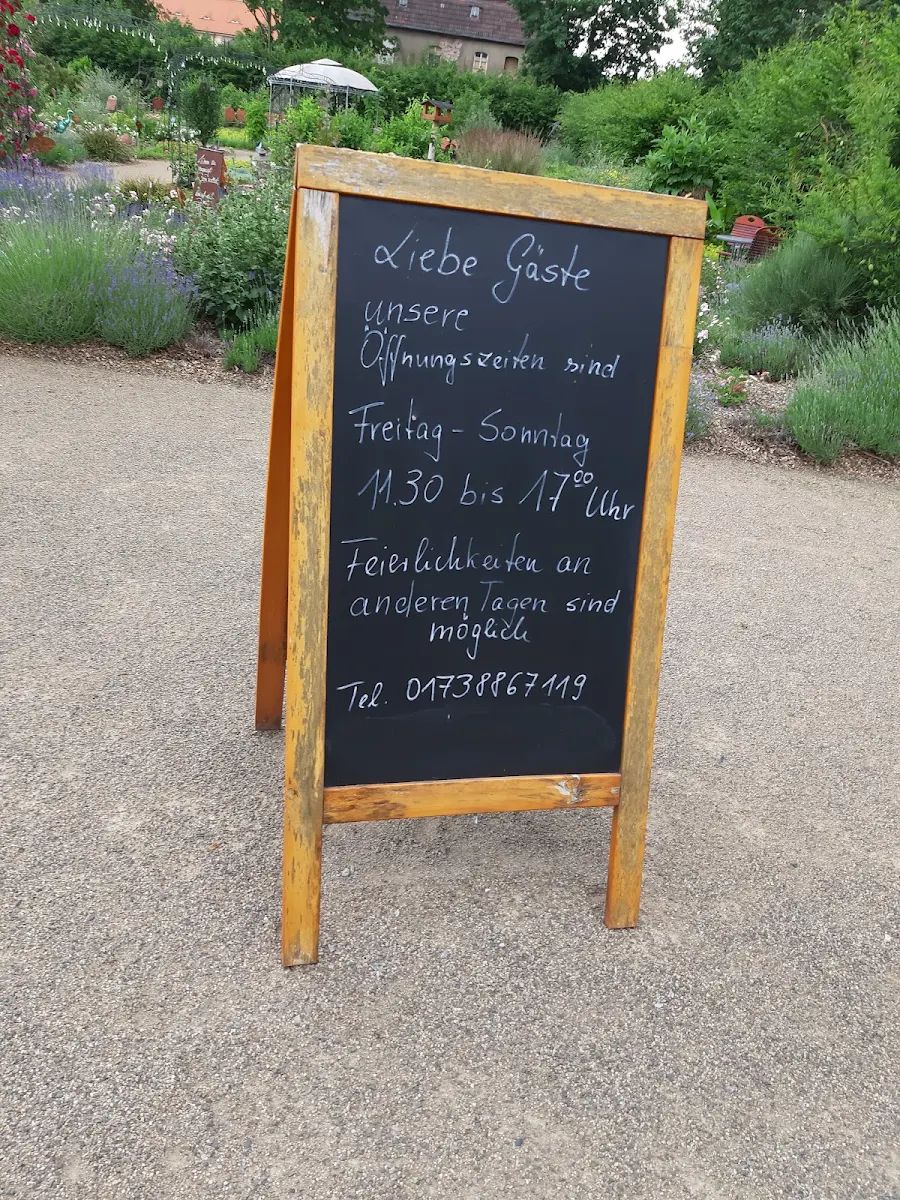 Liebe Gäste
unsere
Öffnungszeiten sind
Freitag - Sonntag
11.30 bis 17⁰⁰ Uhr
Feierlichkeiten an
anderen Tagen sind
möglich
Tel. 01738867119